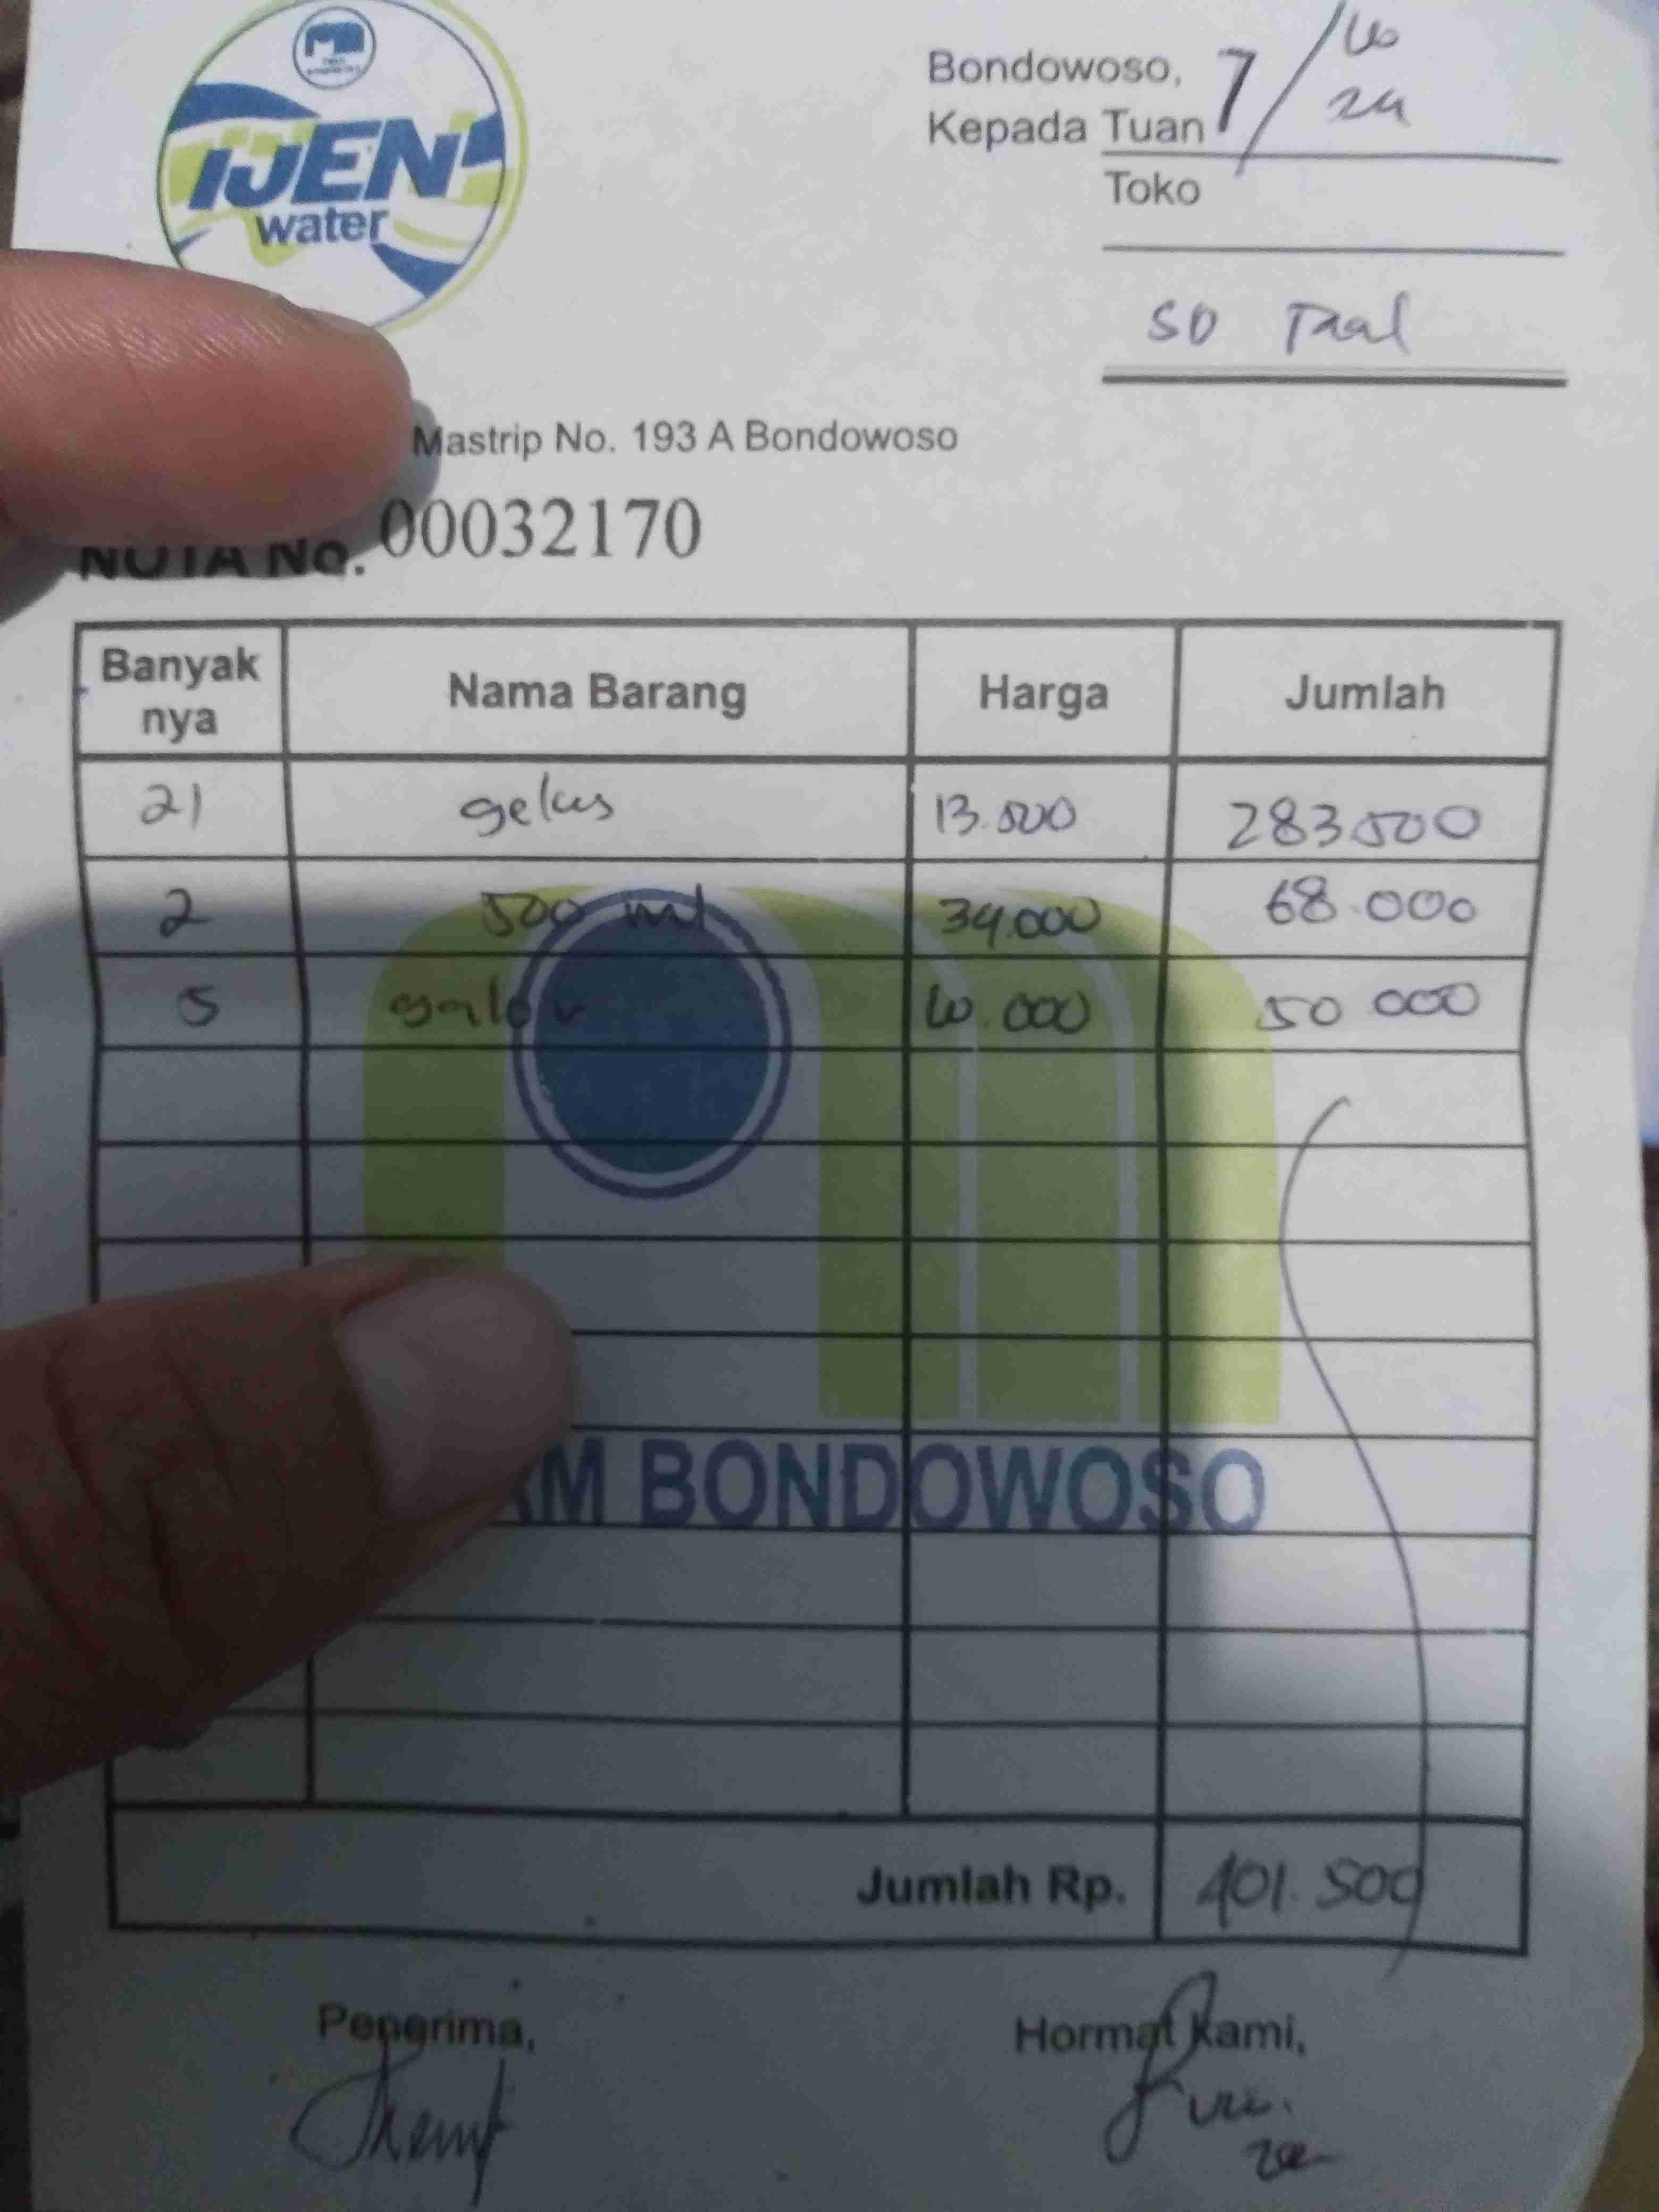 IJEN
water
Bondowoso, 7/10
24
Kepada Tuan
Toko
SD
Mastrip No. 193 A Bondowoso
NOTA No. 00032170
Banyak nya Nama Barang Harga Jumlah
21 gelas 13.500 283.500
2 500 ml 34.000 68.000
5 galon 10.000 50 000
AM BONDOWOSO
Jumlah Rp. 401.500
Penerima, Hormat Kami,